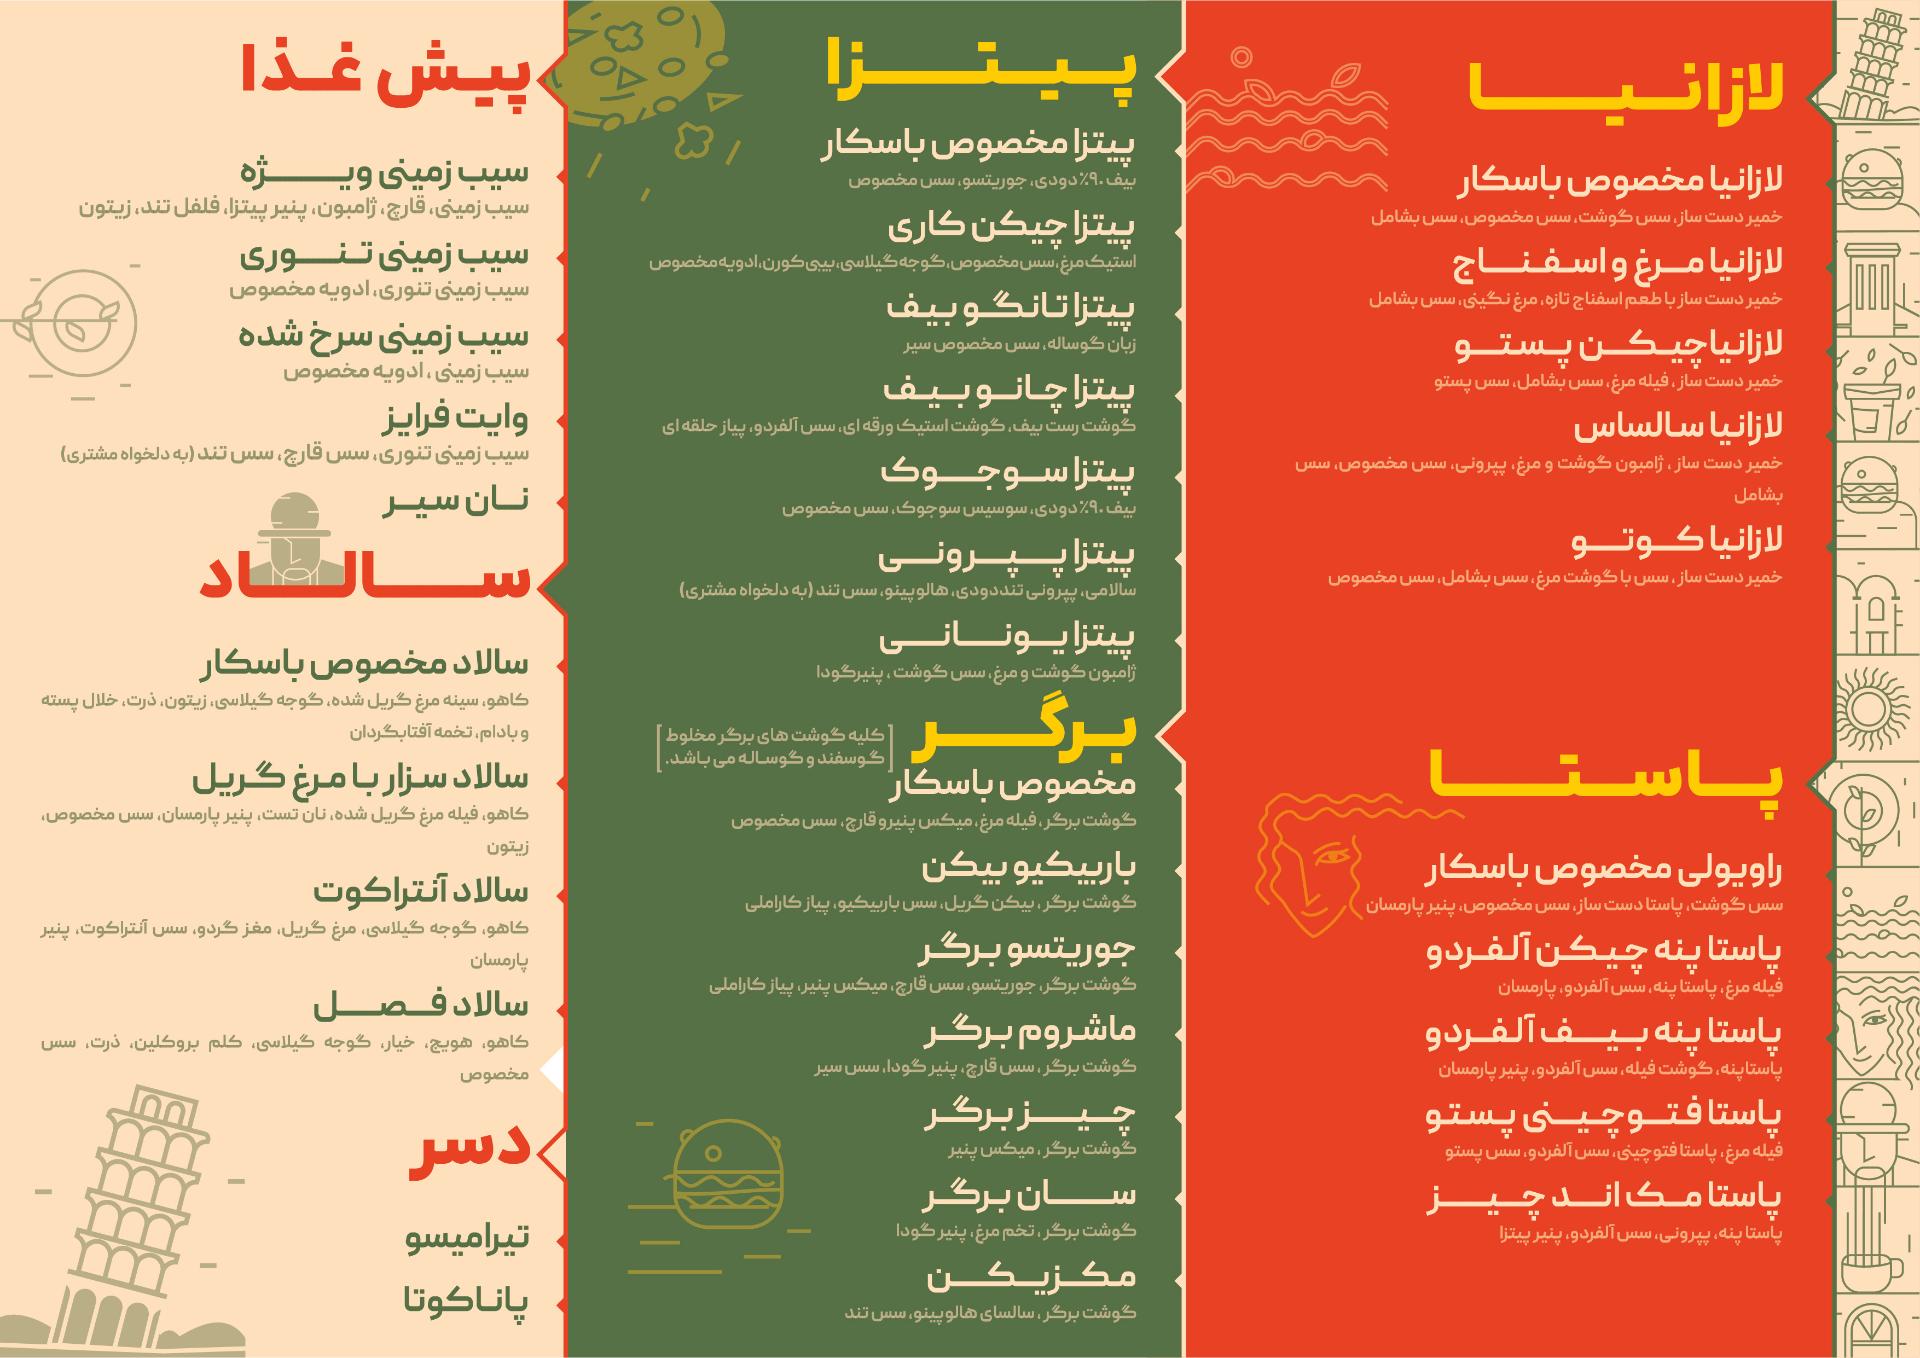 لازانیا
لازانیا مخصوص باسکار
خمیر دست ساز، سس گوشت، سس مخصوص، سس بشامل
لازانیا مرغ و اسفناج
خمیر دست ساز با طعم اسفناج تازه، مرغ نگینی، سس بشامل
لازانیا چیکن پستو
خمیر دست ساز ، فیله مرغ، سس بشامل، سس پستو
لازانیا سالساس
خمیر دست ساز ، ژامبون گوشت و مرغ، پپرونی، سس مخصوص، سس
بشامل
لازانیا کوتو
خمیر دست ساز ، سس با گوشت مرغ، سس بشامل، سس مخصوص
پاستا
راویولی مخصوص باسکار
سس گوشت، پاستا دست ساز، سس مخصوص، پنیر پارمسان
پاستا پنه چیکن آلفردو
فیله مرغ، پاستا پنه، سس آلفردو، پارمسان
پاستا پنه بیف آلفردو
پاستا پنه، گوشت فیله، سس آلفردو، پنیر پارمسان
پاستا فتوچینی پستو
فیله مرغ، پاستا فتوچینی، سس آلفردو، سس پستو
پاستا مک اند چیز
پاستا پنه، پپرونی، سس آلفردو، پنیر پیتزا
پیتزا
پیتزا مخصوص باسکار
بیف ۹۰٪ دودی، جوریتسو، سس مخصوص
پیتزا چیکن کاری
استیک مرغ، سس مخصوص، گوجه گیلاسی، بیبی کورن، ادویه مخصوص
پیتزا تانگو بیف
زبان گوساله، سس مخصوص سیر
پیتزا چانو بیف
گوشت رست بیف، گوشت استیک ورقه ای، سس آلفردو، پیاز حلقه ای
پیتزا سوجوک
بیف ۹۰٪ دودی، سوسیس سوجوک، سس مخصوص
پیتزا پپرونی
سالامی، پپرونی تند دودی، هالوپینو، سس تند (به دلخواه مشتری)
پیتزا یونانی
ژامبون گوشت و مرغ، سس گوشت ، پنیر گودا
برگر
[کلیه گوشت های برگر مخلوط
گوسفند و گوساله می باشد.]
مخصوص باسکار
گوشت برگر ، فیله مرغ، میکس پنیر و قارچ، سس مخصوص
باربیکیو بیکن
گوشت برگر ، بیکن گریل، سس باربیکیو، پیاز کاراملی
جوریتسو برگر
گوشت برگر، جوریتسو، سس قارچ، میکس پنیر، پیاز کاراملی
ماشروم برگر
گوشت برگر ، سس قارچ، پنیر گودا، سس سیر
چیز برگر
گوشت برگر ، میکس پنیر
سان برگر
گوشت برگر ، تخم مرغ، پنیر گودا
مکزیکن
گوشت برگر ، سالسای هالوپینو، سس تند
پیش غذا
سیب زمینی ویژه
سیب زمینی، قارچ، ژامبون، پنیر پیتزا، فلفل تند، زیتون
سیب زمینی تنوری
سیب زمینی تنوری، ادویه مخصوص
سیب زمینی سرخ شده
سیب زمینی ، ادویه مخصوص
وایت فرایز
سیب زمینی تنوری، سس قارچ، سس تند (به دلخواه مشتری)
نان سیر
سالاد
سالاد مخصوص باسکار
کاهو، سینه مرغ گریل شده، گوجه گیلاسی، زیتون، ذرت، خلال پسته
و بادام، تخمه آفتابگردان
سالاد سزار با مرغ گریل
کاهو، فیله مرغ گریل شده، نان تست، پنیر پارمسان، سس مخصوص،
زیتون
سالاد آنتراکوت
کاهو، گوجه گیلاسی، مرغ گریل، مغز گردو، سس آنتراکوت، پنیر
پارمسان
سالاد فصل
کاهو، هویج، خیار، گوجه گیلاسی، کلم بروکلین، ذرت، سس
مخصوص
دسر
تیرامیسو
پاناکوتا